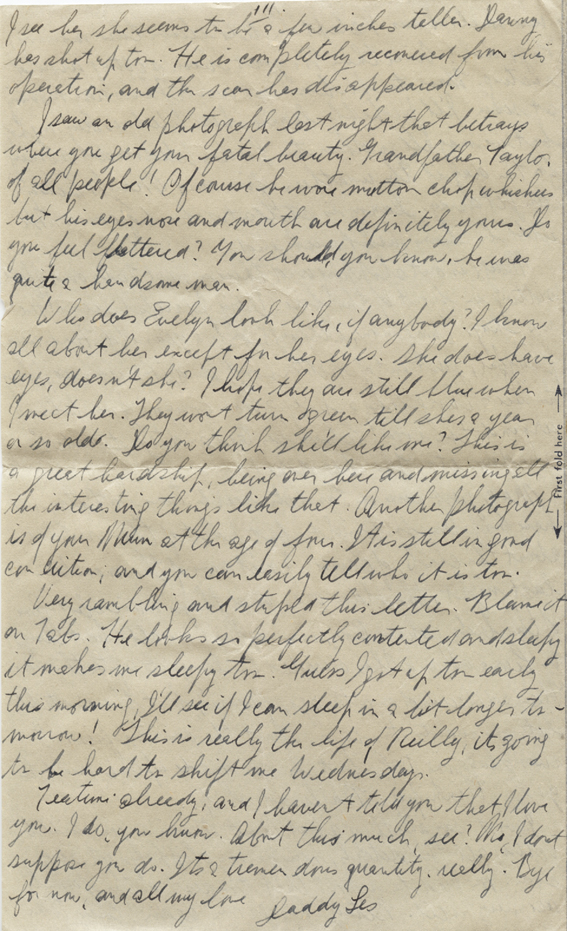 III.
I see her she seems to be a few inches taller. Danny
has shot up too. He is completely recovered from his
operation, and the scar has disappeared.
I saw an old photograph last night that betrays
where you get your fatal beauty. Grandfather Taylor,
of all people! Of course he wore mutton chop whiskers
but his eyes nose and mouth are definitely yours. Do
you feel flattered? You should, you know, he was
quite a handsome man.
Who does Evelyn look like, if anybody? I know
all about her except for her eyes. She does have
eyes, doesn't she? I hope they are still blue when
I meet her. They won't turn green till shes a year
or so old. Do you think she'll like me? This is
a great hardship, being over here and missing all
the interesting things like that. Another photograph
is of your Mum at the age of four. It is still in good
condition, and you can easily tell who it is too.
Very rambling and stupid this letter. Blame it
on Tabs. He looks so perfectly contented and sleepy
it makes me sleepy too. Guess I got up too early
this morning, I'll see if I can sleep in a bit longer to-
morrow! This is really the life of Reilly, its going
to be hard to shift me Wednesday.
Teatime already, and I haven't told you that I love
you. I do, you know. About this much, see? No, I don't
suppose you do. Its a tremendous quantity, really. Bye
for now, and all my love
Daddy Les
First fold here